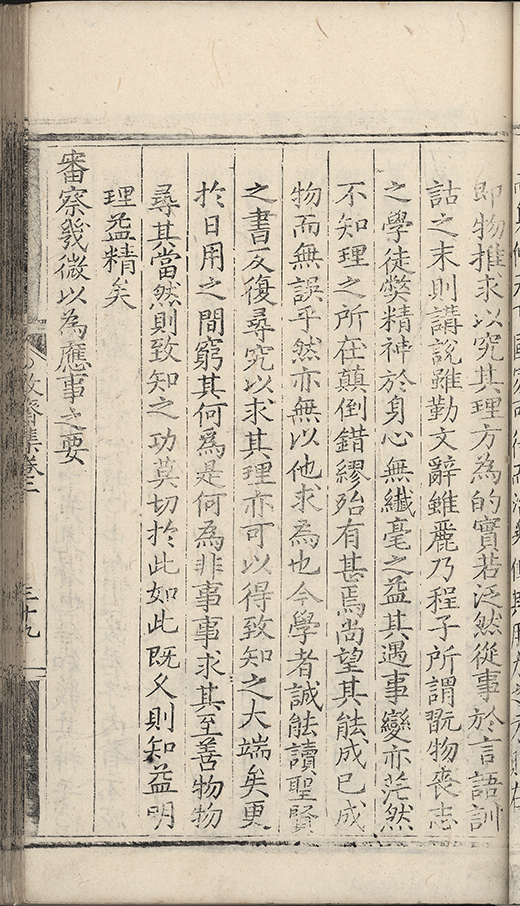 即物推求以究其理方為的實若泛然從事於言語訓
詁之末則講說雖勤文辭雖麗乃程子所謂翫物喪志
之學徒獘精神於身心無纖毫之益其遇事變亦茫然
不知理之所在顛倒錯繆殆有甚焉尚望其能成已成
物而無誤乎然亦無以他求為也今學者誠能讀聖賢
之書反復尋究以求其理亦可以得致知之大端矣更
於日用之間窮其何爲是何為非事事求其至善物物
尋其當然則致知之功莫切於此如此既久則知益明
理益精矣
審察幾微以為應事之要
齋集卷三
三十九